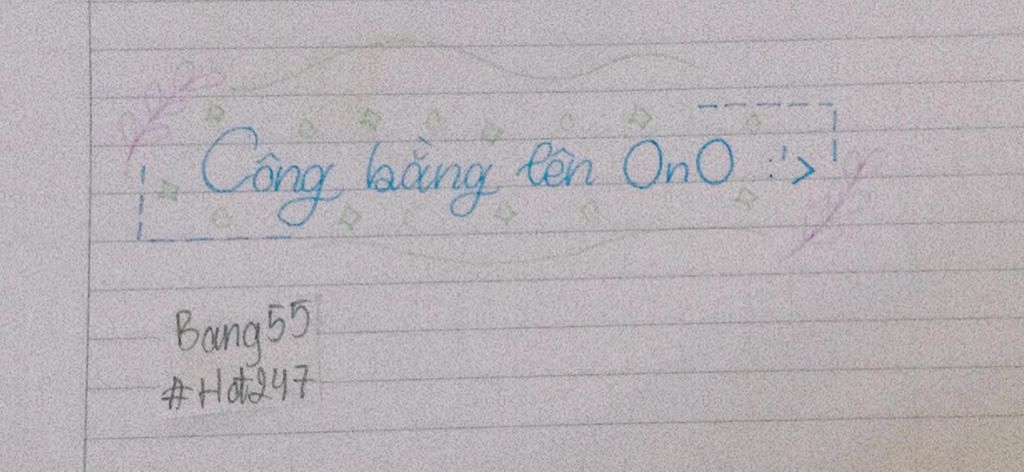 Công bằng lên OnO :'>
Bang55
#Hot247